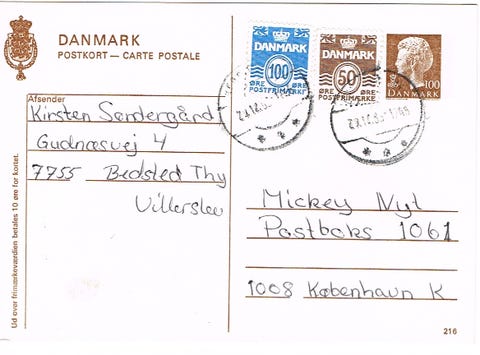 DANMARK
POSTKORT — CARTE POSTALE
Afsender
Kirsten Søndergård
Gudnæsvej 4
7755 Bedsted Thy
Villerslev
Ud over frimærkeværdien betales 10 øre for kortet.
DANMARK
100
ØRE ØRE
POSTFRIMÆRKE
DANMARK
50
ØRE ØRE
POSTFRIMÆRKE
100
DANMARK
Mickey Nyt
Postboks 1061
1008 København K
216